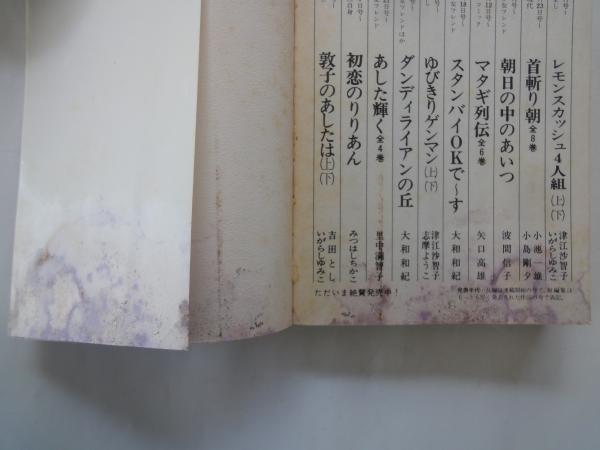 レモンスカッシュ4人組(上)(下)
津江沙智子
いがらしゆみこ
首斬り朝全8巻
小池一雄
小島剛夕
朝日の中のあいつ
波間信子
マタギ列伝全6巻
矢口高雄
スタンバイOKで〜す
大和和紀
ゆびきりゲンマン(上)(下)
津江沙智子
志摩ようこ
ダンディライアンの丘
大和和紀
あした輝く全4巻
里中満智子
初恋のりりあん
みつはしちかこ
敦子のあしたは(上)(下)
吉田とし
いがらしゆみこ
ただいま絶賛発売中!